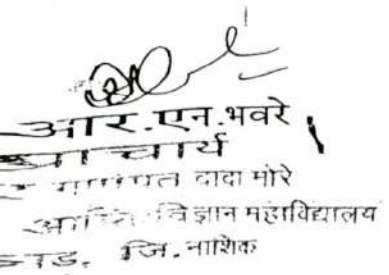 आर.एन.भवरे
प्राचार्य
दादा मोरे
विज्ञान महाविद्यालय
जि. नाशिक